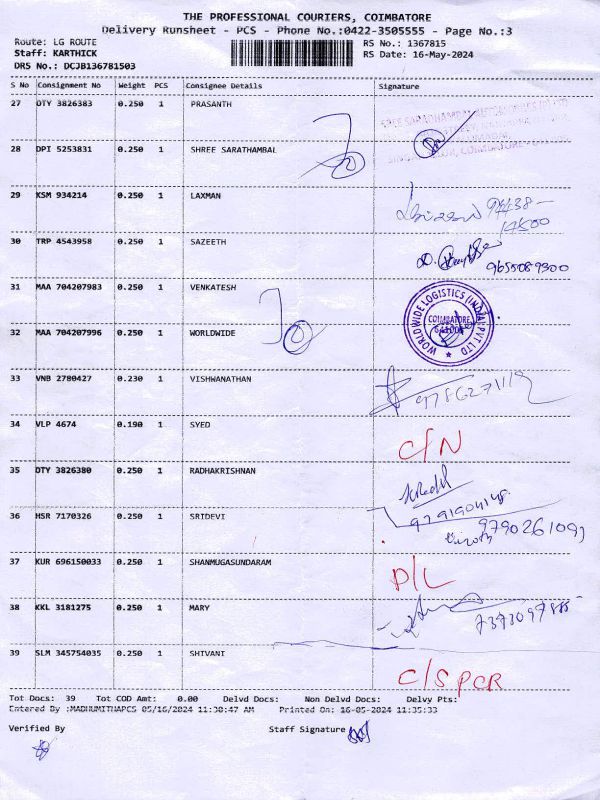 THE PROFESSIONAL COURIERS, COIMBATORE
Delivery Runsheet - PCS - Phone No.:0422-3505555 - Page No.:3
Route: LG ROUTE RS No.: 1367815
Staff: KARTHICK RS Date: 16-May-2024
DRS No.: DCJB136781503
S No Consignment No Weight PCS Consignee Details Signature
27 DTY 3826383 0.250 1 PRASANTH
28 DPI 5253831 0.250 1 SHREE SARATHAMBAL
29 KSM 934214 0.250 1 LAXMAN 94438-
14500
30 TRP 4543958 0.250 1 SAZEETH
9655089300
31 MAA 704207983 0.250 1 VENKATESH
WORLDWIDE LOGISTICS (INDIA) PVT LTD
COIMBATORE
32 MAA 704207996 0.250 1 WORLDWIDE
33 VNB 2780427 0.230 1 VISHWANATHAN
34 VLP 4674 0.190 1 SYED C/N
35 DTY 3826380 0.250 1 RADHAKRISHNAN
36 HSR 7170326 0.250 1 SRIDEVI 9790261091
37 KUR 696150033 0.250 1 SHANMUGASUNDARAM D/L
38 KKL 3181275 0.250 1 MARY
39 SLM 345754035 0.250 1 SHIVANI C/S PCR
Tot Docs: 39 Tot COD Amt: 0.00 Delvd Docs: Non Delvd Docs: Delvy Pts:
Entered By :MADHUMITHAPCS 05/16/2024 11:30:47 AM Printed On: 16-05-2024 11:35:33
Verified By Staff Signature